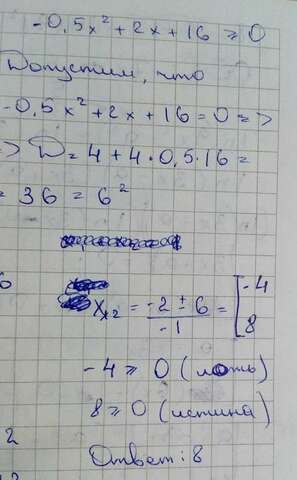 -0,5x² + 2x + 16 ≥ 0
Допустим, что
-0,5x² + 2x + 16 = 0 =>
=> D = 4 + 4·0,5·16 =
= 36 = 6²
6
x₁,₂ = (-2 ± 6)/(-1) = [-4
8
-4 ≥ 0 (ложь)
8 ≥ 0 (истина)
2
Ответ: 8